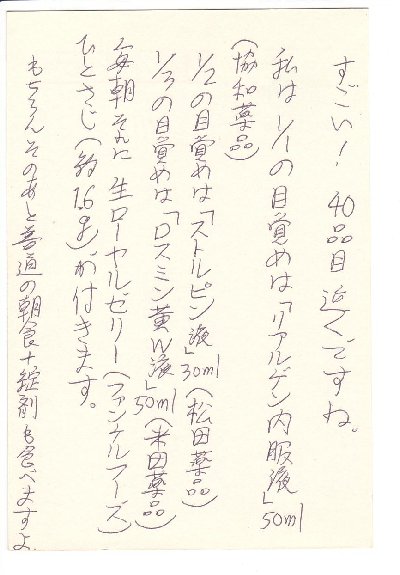 すごい! 40品目近くですね。
私は1/1の目覚めは「リアルゲン内服液」50ml
(協和薬品)
1/2の目覚めは「ストルピン液」30ml(松田薬品)
1/3の目覚めは「ロスミン黄W液」50ml(米田薬品)
毎朝それに生ローヤルゼリー(ファンナルアーズ)
ひとさじ(約1.6g)が付きます。
もちろんそのあと普通の朝食+錠剤も食べますよ